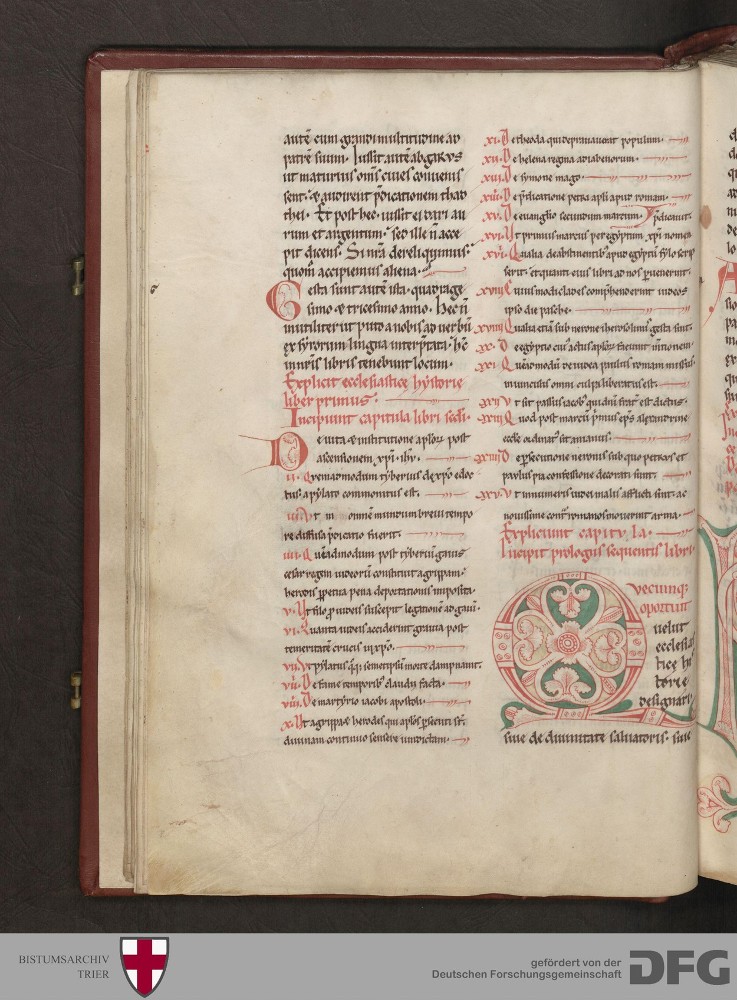 autē cum grandi multitudine ad
patrē suum. Iussit autē abgarus
ut maturius om̄s ciues conuenis
sent. & audirent p̄dicationem thad
thei. Et post hec. iussit ei dari au
rum et argentum. sed ille n̄ acce
pit dicens. Si n̄ra dereliquimus.
quom̄ accipiemus aliena.
Gesta sunt autē ista. quadrage
simo & tricesimo anno. Hec n̄
inutiliter ut puto a nobis ad uerbū
ex syrorum lingua interp̄tata. hec
in n̄ris libris tenebunt locum.
Explicit ecclesiasticę hystorię
liber primus.
Incipiunt capitula libri scdi.
De uita & institutione aploꝝ post
ascensionem xp̄i ihu.
ii. Quemadmodum tyberius de xp̄o edoc
tus a pylato commonitus est.
iii. Ut in omnem mundum breui tempo
re diffusa p̄dicatio fuerit.
iiii. Quēadmodum post tyberiū gaius
cesar regem iudeorū constituit agrippam.
herodis ppetua pena deportationis imposita.
v. Ut filo p iudeis suscepit legationē ad gaiū.
vi. Quanta iudeis acciderint grauia post
temeritatē crucis in xp̄o.
vii. Ut pylatus semetipsū morte dampnauit.
vii. De fame temporibꝰ claudii facta.
viiii. De martyrio iacobi apostoli.
x. Ut agrippa & herodes qui aplos psecuti st̄.
diuinam continuo sensere uindictam.
xi. De theoda qui deprauauerat populum.
xii. De helena regina adiabenorum.
xiii. De symone mago.
xiiii. De p̄dicatione petri apli aput romam.
xv. De euanglio secundum marcum. p̄dicauit.
xvi. Ut primus marcus per egyptum xp̄i nomen
xvii. Qualia de abstinentibꝰ apud egyptū fylo scrip
serit. et quanti eius libri ad nos puenerunt.
xviii. Cuiusmodi clades comp̄henderint iudeos
ipso die paschę.
xviiii. Qualia etiā sub nerone iherosolimis gesta sint.
xx. De egyptio cuiꝰ actus aploꝝ faciunt mtionem
xxi. Quēadmodū de iudea paulus romam missus
innunciis omni culpa liberatus est.
xxii. Ut sit passus iacobꝰ qui dn̄i frat̄ est dictus.
xxiii. Quod post marcū p̄mus ep̄s alexandrine
eccle ordinatꝰ sit anianus.
xxiiii. De psecutione neronis sub quo petrus et
paulus pia confessione decorati sunt.
xxv. Ut innumeris iudei malis afflicti sint. ac
nouissime cont̄ romanos mouerint arma.
Expliciunt capitula.
Incipit prologus sequentis libri
Quecunq;
oportuit
uelut
ecclesias
tice his
torię
designari
siue de diuinitate saluatoris. siue
BISTUMSARCHIV
TRIER
gefördert von der
Deutschen Forschungsgemeinschaft
DFG